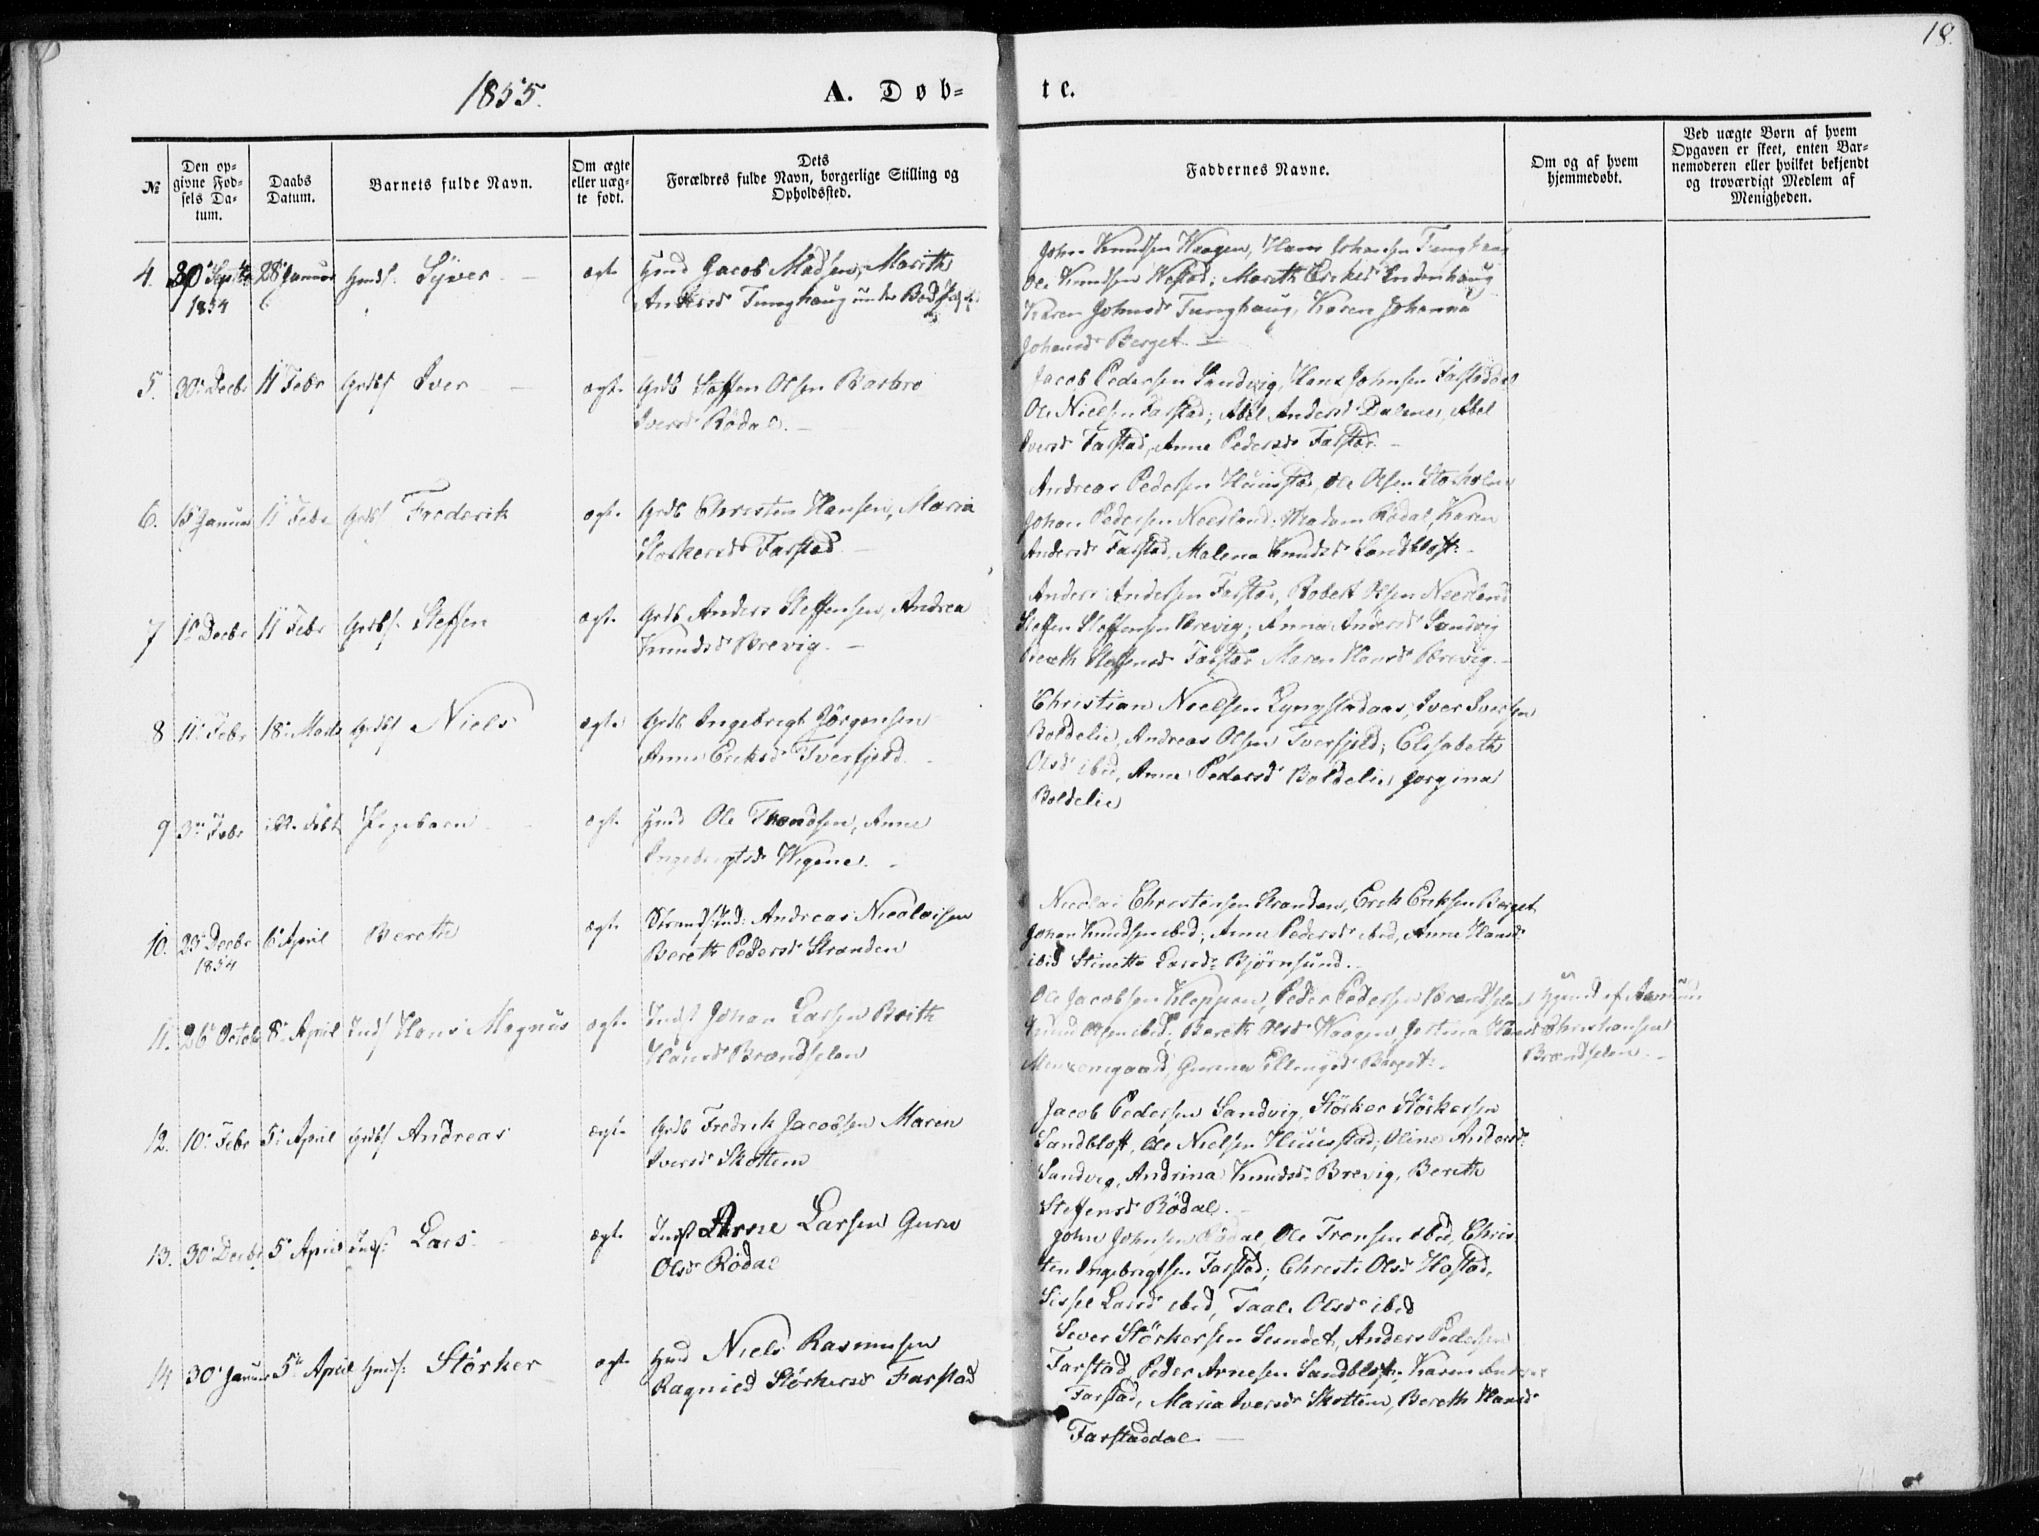 18.
1855.
A. Døb-
te.
№
Den op-
givne Fød-
sels Da-
tum.
Daabs
Datum.
Barnets fulde Navn.
Om ægte
eller uæg-
te født.
Dets
Forældres fulde Navn, borgerlige Stilling og
Opholdssted.
Faddernes Navne.
Om og af hvem
hjemmedøbt.
Ved uægte Børn af hvem
Opgaven er skeet, enten Bar-
nemoderen eller hvilket bekjendt
og troværdigt Medlem af
Menigheden.
4. 30' Septbr 1854 28' Januar Hmds: Syver ægte
Hmd Jacob Madsen, Marith
Andersd Tunghaug under
John Knudsen Waagen, Hans Johansen Tunghaug
Ole Knudsen Hostad; Marith Eriksd Endenhaug
Karen Johnsd Tunghaug, Karen Johanna
Johansd Berget
5. 30' Decbr 11' Febr Grdbs Iver ægte
Grdb Steffen Olsen Barbro
Iversd Rødal.
Jacob Pedersen Sandvig, Hans Johnsen Farstaddal
Ole Nielsen Farstad; Abel Andersd Dalene, Abel
Iversd Farstad, Anne Pedersd Farstad.
6. 15' Januar 11' Febr Grdbs Frederik ægte
Grdb Christen Hansen, Maria
Størkersd Farstad
Andreas Pedersen Huustad, Ole Olsen Storholm
Johan Pedersen Neerland, Madam Rødal, Karen
Andersd Farstad, Malena Knudsd Sandblost.
7 1' Decbr 11' Febr Grdbs. Steffen ægte
Grdb Anders Steffensen, Andrea
Knudsd Brevig.
Anders Andersen Farstad, Robert Olsen Neerland
Steffen Steffensen Brevig; Anna Andersd Sandvig
Bereth Steffensd Farstad Maren Hansd Brevig.
8 11' Febr 18' Marts Grdbs Niels ægte
Grdb Ingebrigt Jörgensen
Anne Eriksd Tverfjeld.
Christian Nielsen Lyngstadaas, Iver Iversen
Boldelie, Andreas Olsen Tverfjeld; Elisabeth
Olsd ibid, Anne Pedersd Boldelie, Gorgina
Boldelie
9 3' Febr ikke døbt Pigebarn ægte
Hmd Ole Trondsen, Anne
Ingebrigtsd Wegene.
10. 23' Decbr 1854 6' April Bereth ægte
Strands. Ind: Andreas Nicolaisen
Bereth Pedersd Stranden
Nicolai Christensen Stranden, Erik Eriksen Berget
Johan Knudsen ibid; Anne Pedersd ibid, Anne Hansd
ibid Stinette Larsd Bjørnsund.
11. 26' Octob 8' April Inds Hans Magnus ægte
Indst Johan Larsen Brith
Hansd Brandselen
Ole Jacobsen Kleppen, Peder Pedersen Brandselen
Knud Olsen ibid; Bereth Olsd Waagen, Jertina Hansd
Gurina Ellingsd Berget.
Hjemd af Rasmus
Christiansen
Brandselen.
12. 10' Febr 5' April Grdbs Andreas ægte
Grdb Fredrik Jacobsen Maren
Iversd Skottem
Jacob Pedersen Sandvig, Störker Störkersen
Sandblost, Ole Nielsen Huustad; Oline Andersd
Sandvig, Andrina Knudsd Brevig, Bereth
Steffensd Rödal.
13. 30' Decbr 5' April Inds: Lars ægte
Indst Arne Larsen Guru
Olsd Rödal
John Johnsen Rødal, Ole Tronsen ibid, Chris-
ten Ingebrigtsen Farstad; Christi Olsd Hostad,
Sissel Larsd ibid, Taale Olsd ibid
14 30' Januar 5' April Hmds: Störker ægte
Hmd Niels Rasmusen
Ragnild Störkersd Farstad
Sever Störkersen Sundet, Anders Pedersen
Farstad, Peder Arnesen Sandblost, Karen
Farstad, Maria Iversd Skottem, Bereth Hansd
Farstaddal